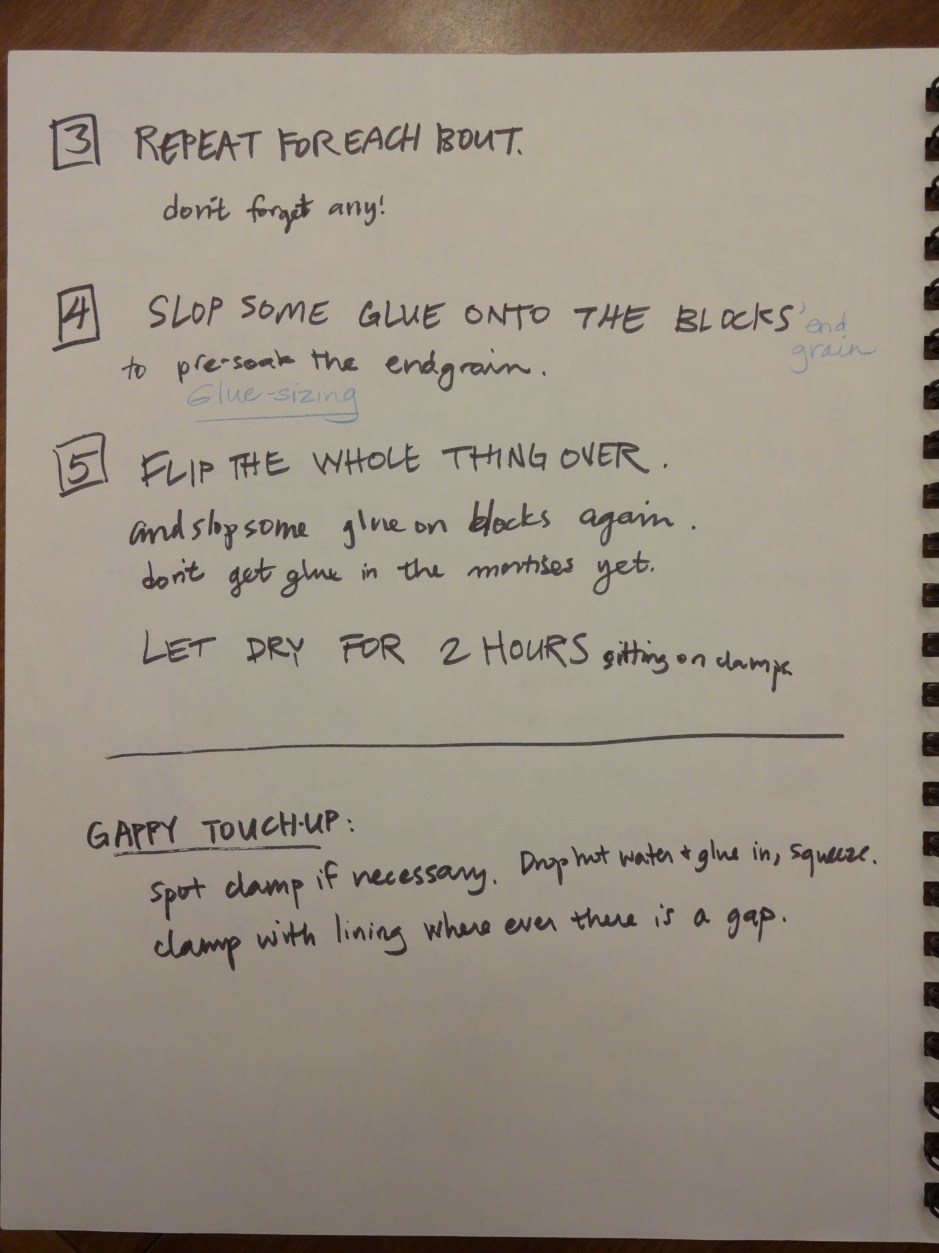 3 REPEAT FOR EACH BOUT.
don't forget any!
4 SLOP SOME GLUE ONTO THE BLOCKS' end
grain
to pre-soak the endgrain.
Glue-sizing
5 FLIP THE WHOLE THING OVER.
and slop some glue on blocks again.
don't get glue in the mortises yet.
LET DRY FOR 2 HOURS sitting on clamps
GAPPY TOUCH-UP:
spot clamp if necessary. Drop hot water + glue in, squeeze.
clamp with lining where ever there is a gap.